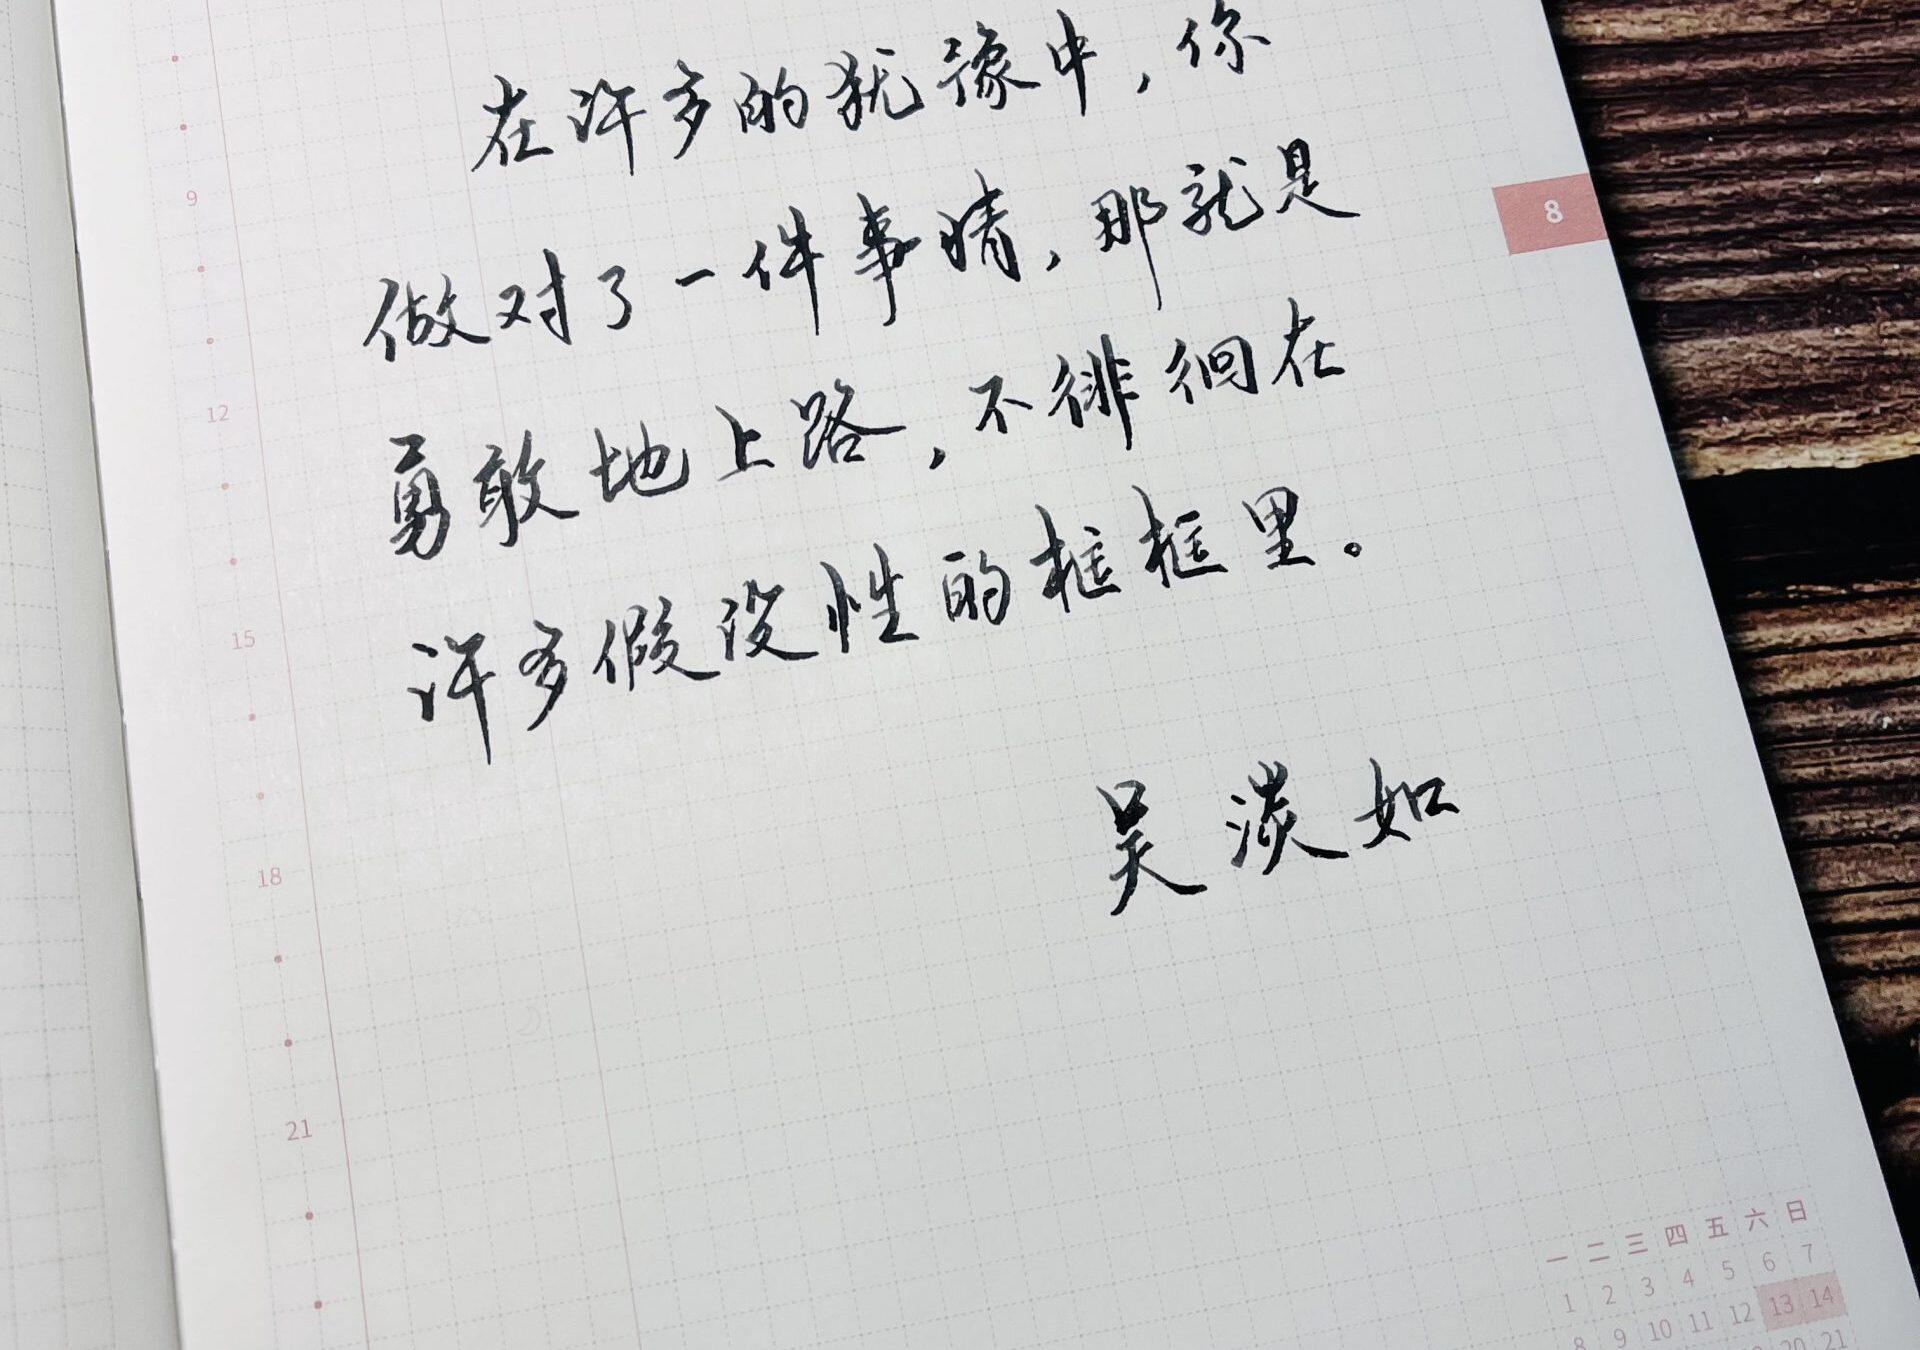 在许多的犹豫中，你
做对了一件事情，那就是
勇敢地上路，不徘徊在
许多假设性的框框里。
吴淡如
8
9
12
15
18
21
一 二 三 四 五 六 日
1 2 3 4 5 6 7
8 9 10 11 12 13 14
20 21